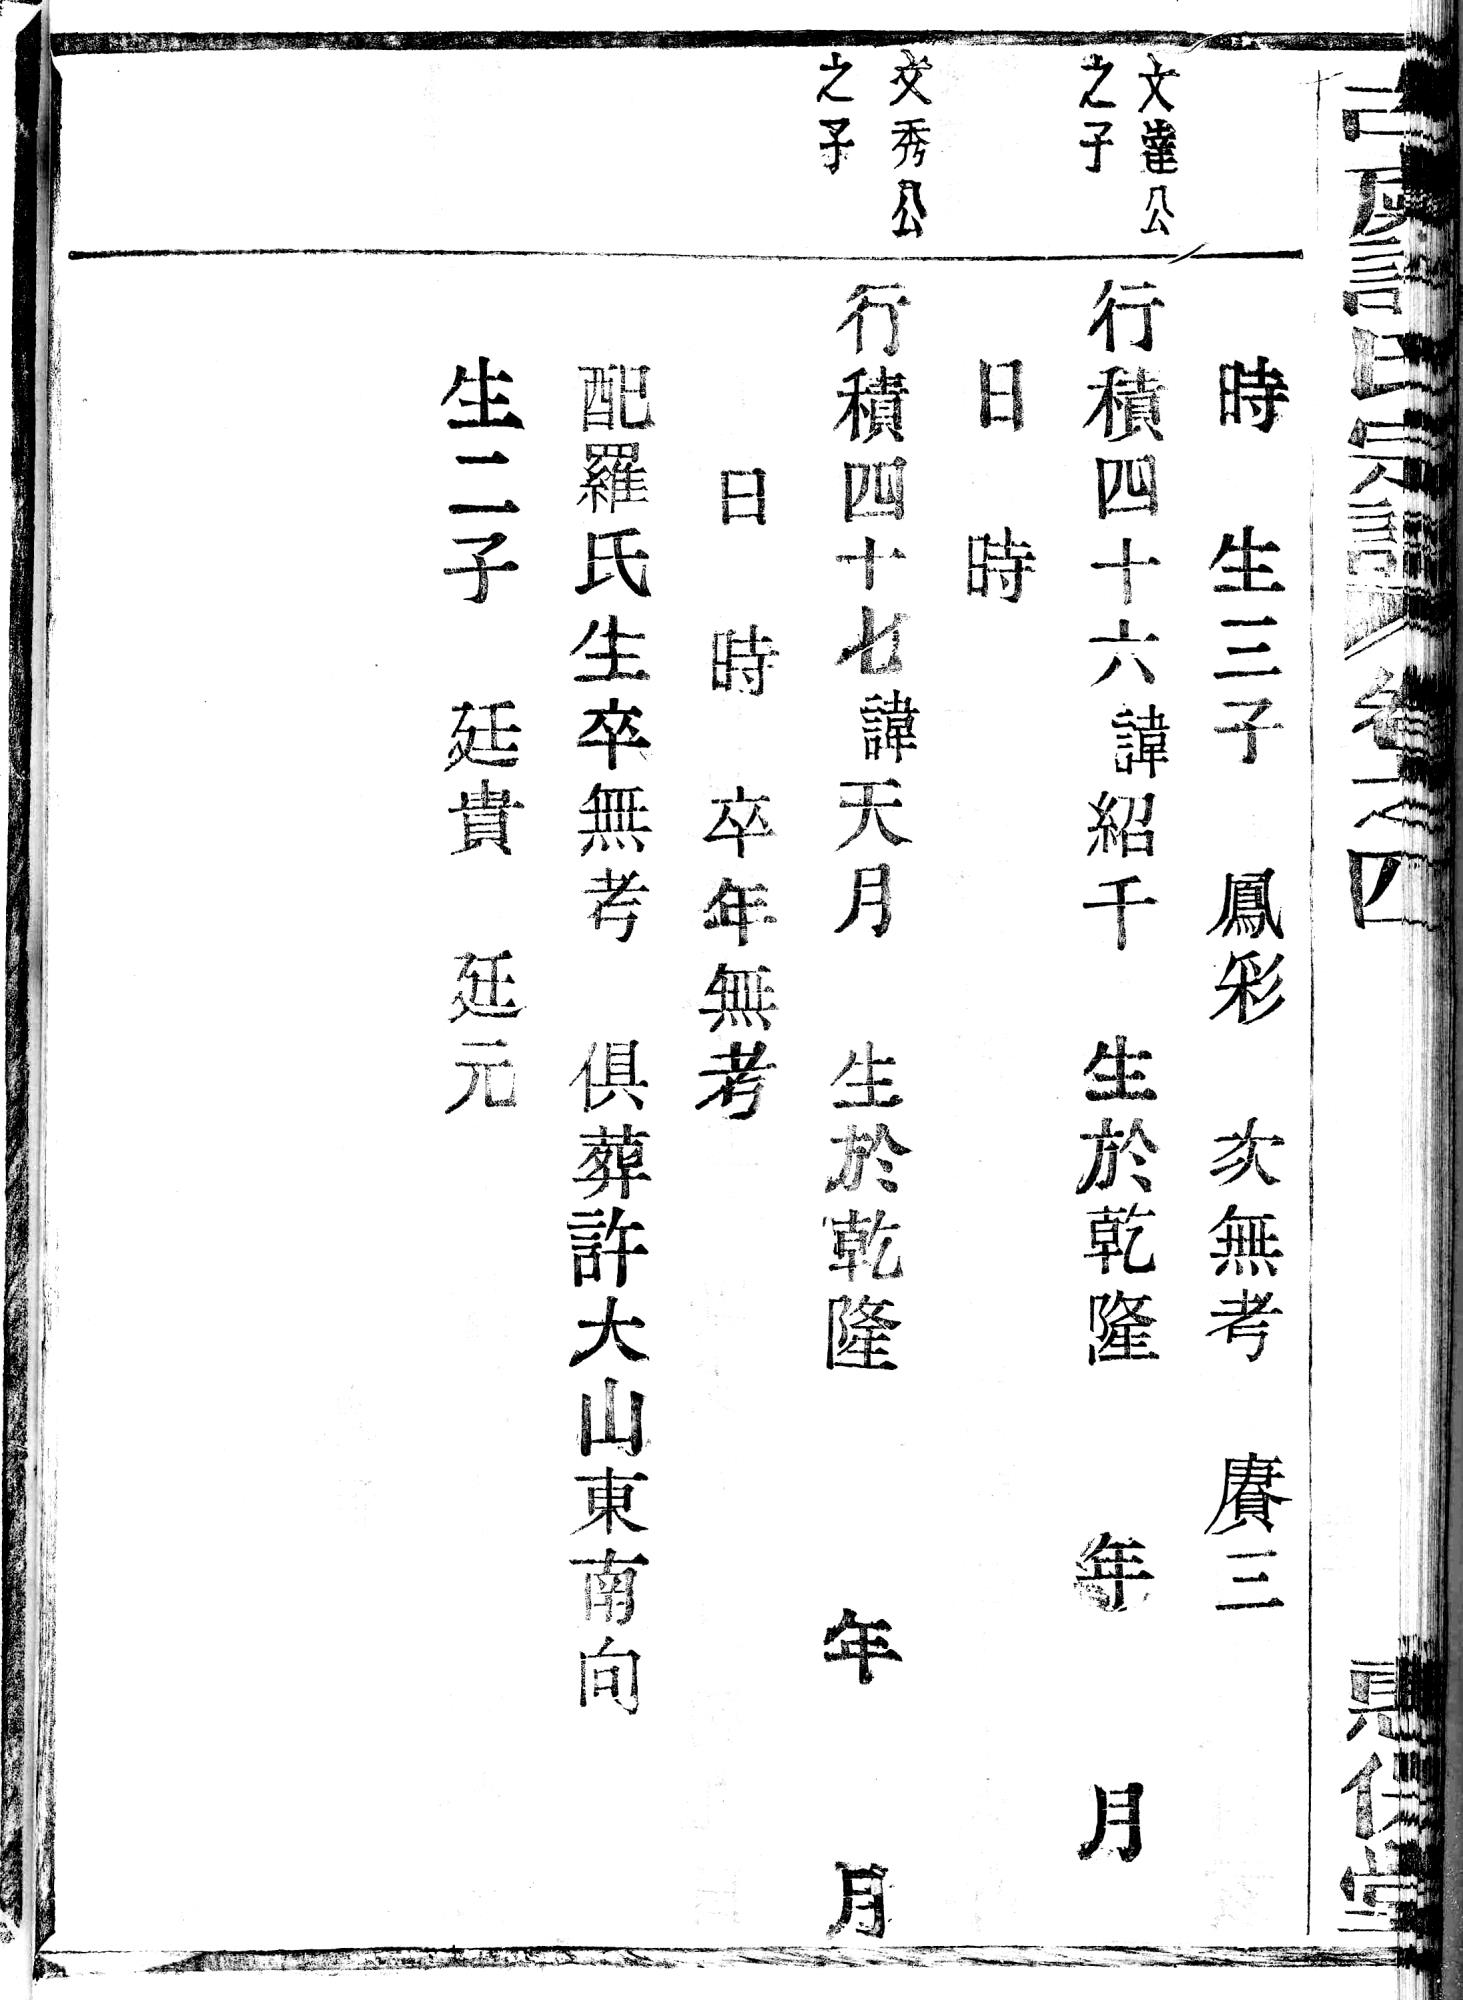 許氏宗譜 卷之四 堂
時 生三子 鳳彩 次無考 賡三
文達公
之子
行積四十六諱紹千 生於乾隆 年 月
日 時
文秀公
之子
行積四十七諱天月 生於乾隆 年 月
日 時 卒年無考
配羅氏生卒無考 俱葬許大山東南向
生二子 廷貴 廷元